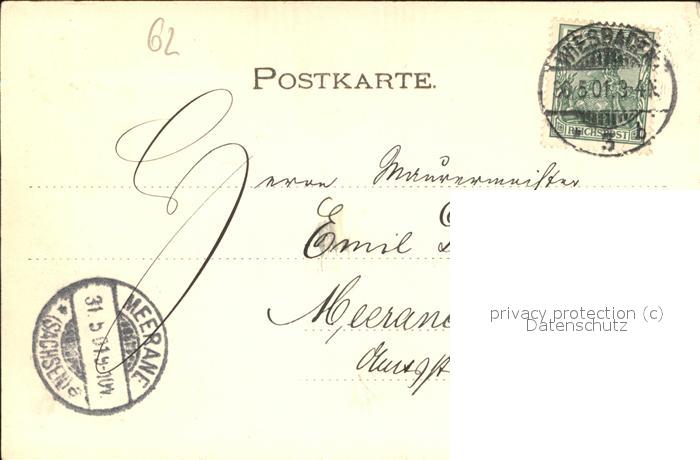 62
POSTKARTE.
WIESBADEN
5.01. 3-4N.
3 b
REICHSPOST
Herrn Maurermeister
Emil
Meerane
MEERANE
31.5.01.
* (SACHSEN) a
privacy protection (c)
Datenschutz